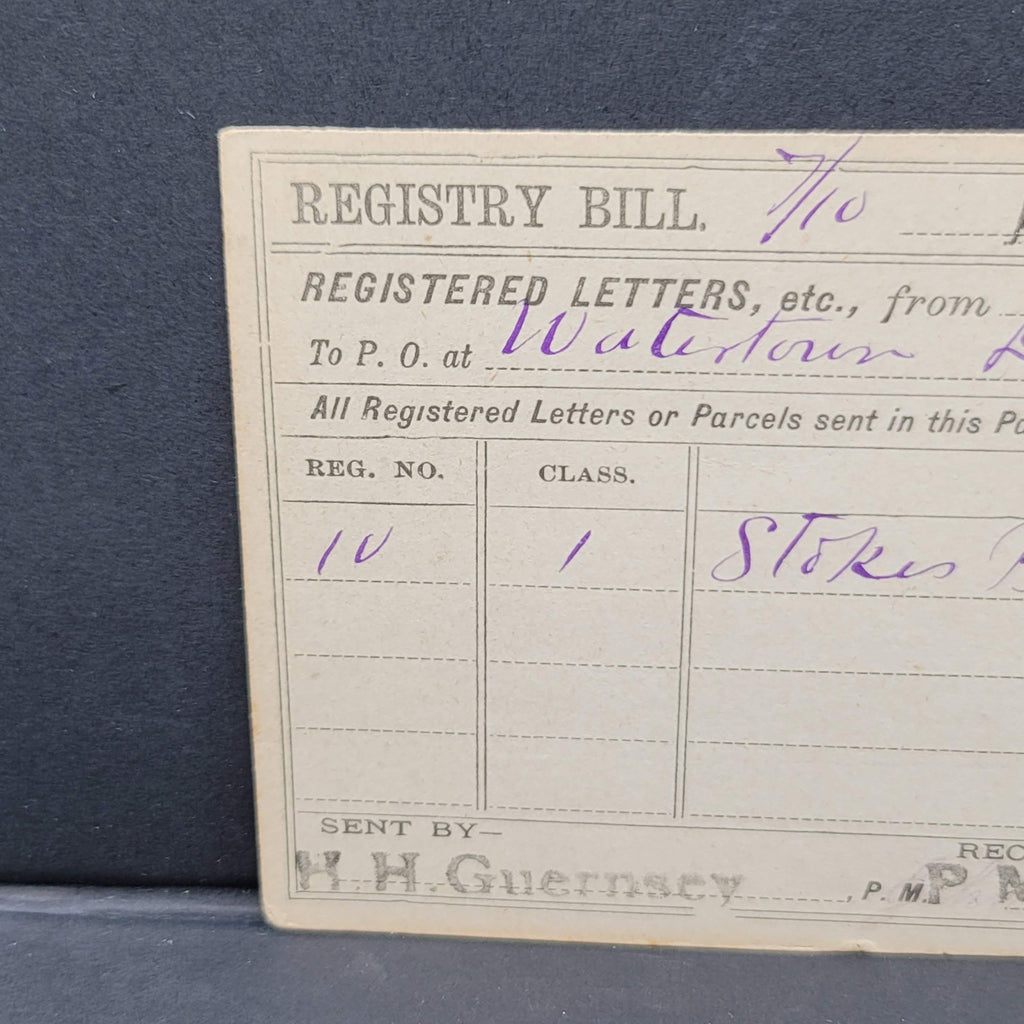 REGISTRY BILL. 7/10
REGISTERED LETTERS, etc., from
To P. O. at Watertown
All Registered Letters or Parcels sent in this
REG. NO. CLASS.
10 1 Stokes
SENT BY—
REC
H. H. Guernsey, P. M. P